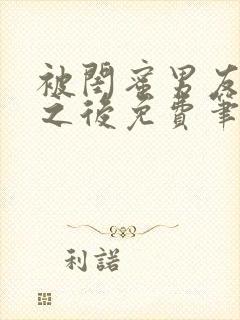 被閨蜜男友
之後免費筆
利諾